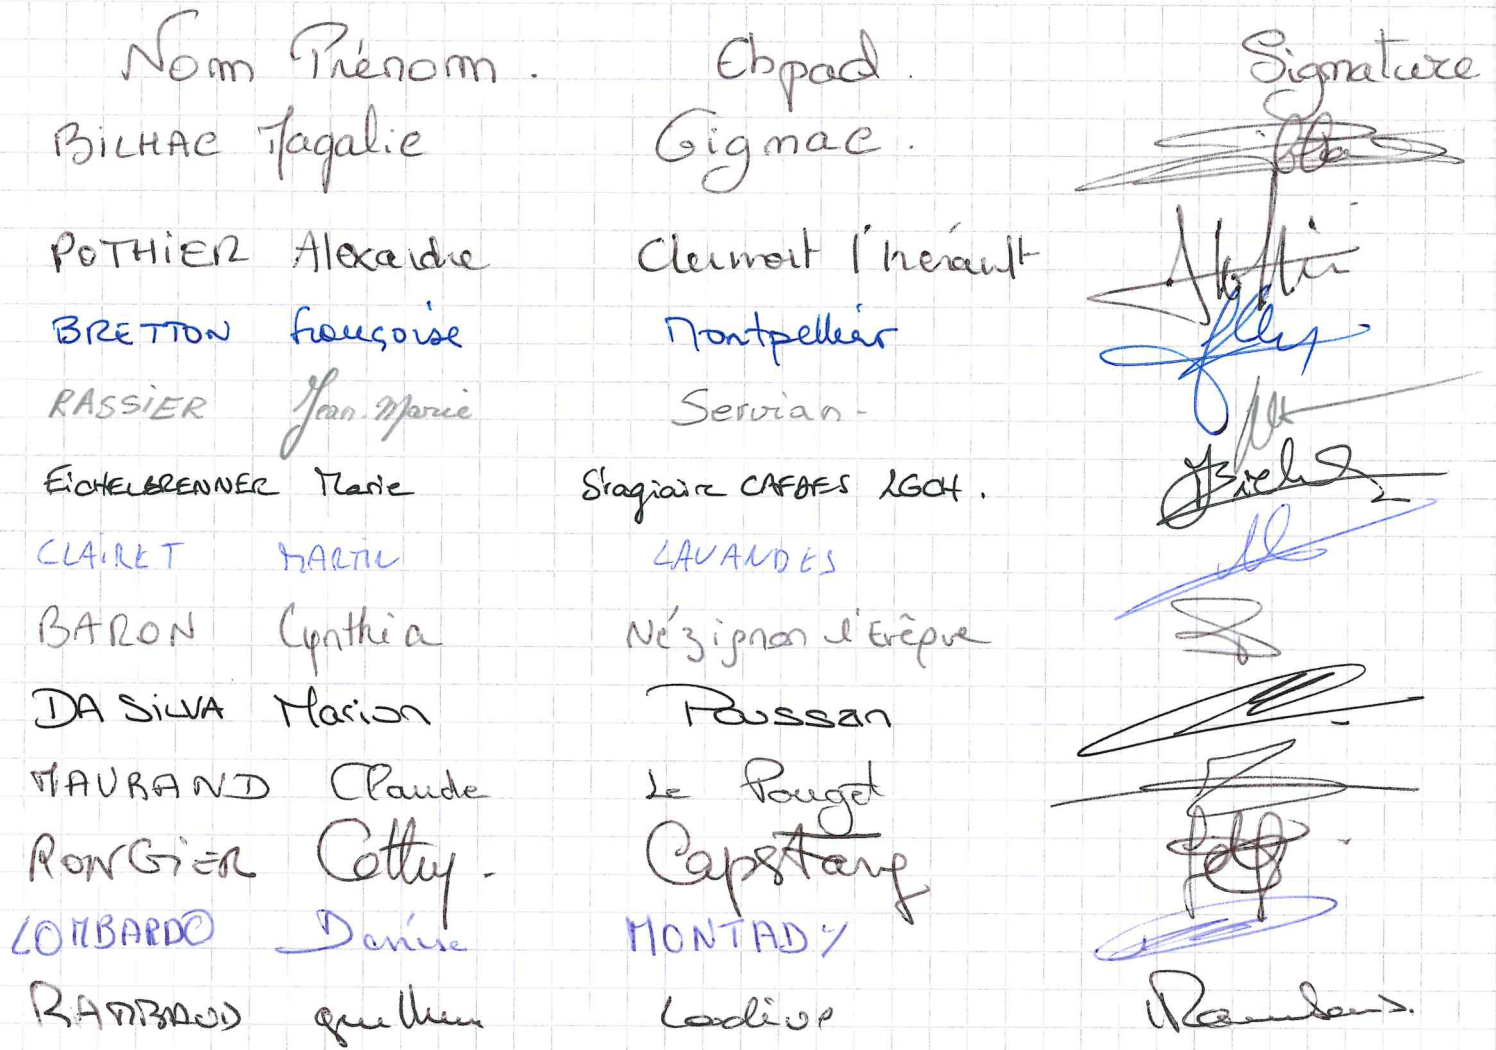 Nom Prénom. Ehpad. Signature
BILHAC Magalie Gignac.
POTHIER Alexandre Clermont l'hérault
BRETTON françoise Montpellier
RASSIER Jean-Marie Servian-
EICHELBRENNER Marie Stagiaire CAFDES
CLAIRET MARTIN LAVANDES
BARON Cynthia Nézignan l'Evêque
DA SILVA Marion Poussan
MAURAND Claude Le Pouget
RONGIER Cathy. Capstang
LOMBARDO Denise MONTADY
RAMBAUD Lodève